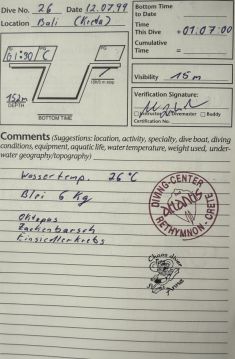 Dive No. 26 Date 12.07.99
Location Bali (Kreta)
Bottom Time
to Date
Time
This Dive + 01:07:00
Cumulative
Time =
Visibility 15m
DEPTH
BOTTOM TIME
Verification Signature:
Instructor Divemaster Buddy
Certification No.
Comments (Suggestions: location, activity, specialty, dive boat, diving
conditions, equipment, aquatic life, water temperature, weight used, under-
water geography/topography)
Wassertemp. 26 °C
Blei 6 Kg
Oktopus
Zackenbarsch
Einsiedlerkrebs
DIVING CENTER
RETHYMNON - CRETE